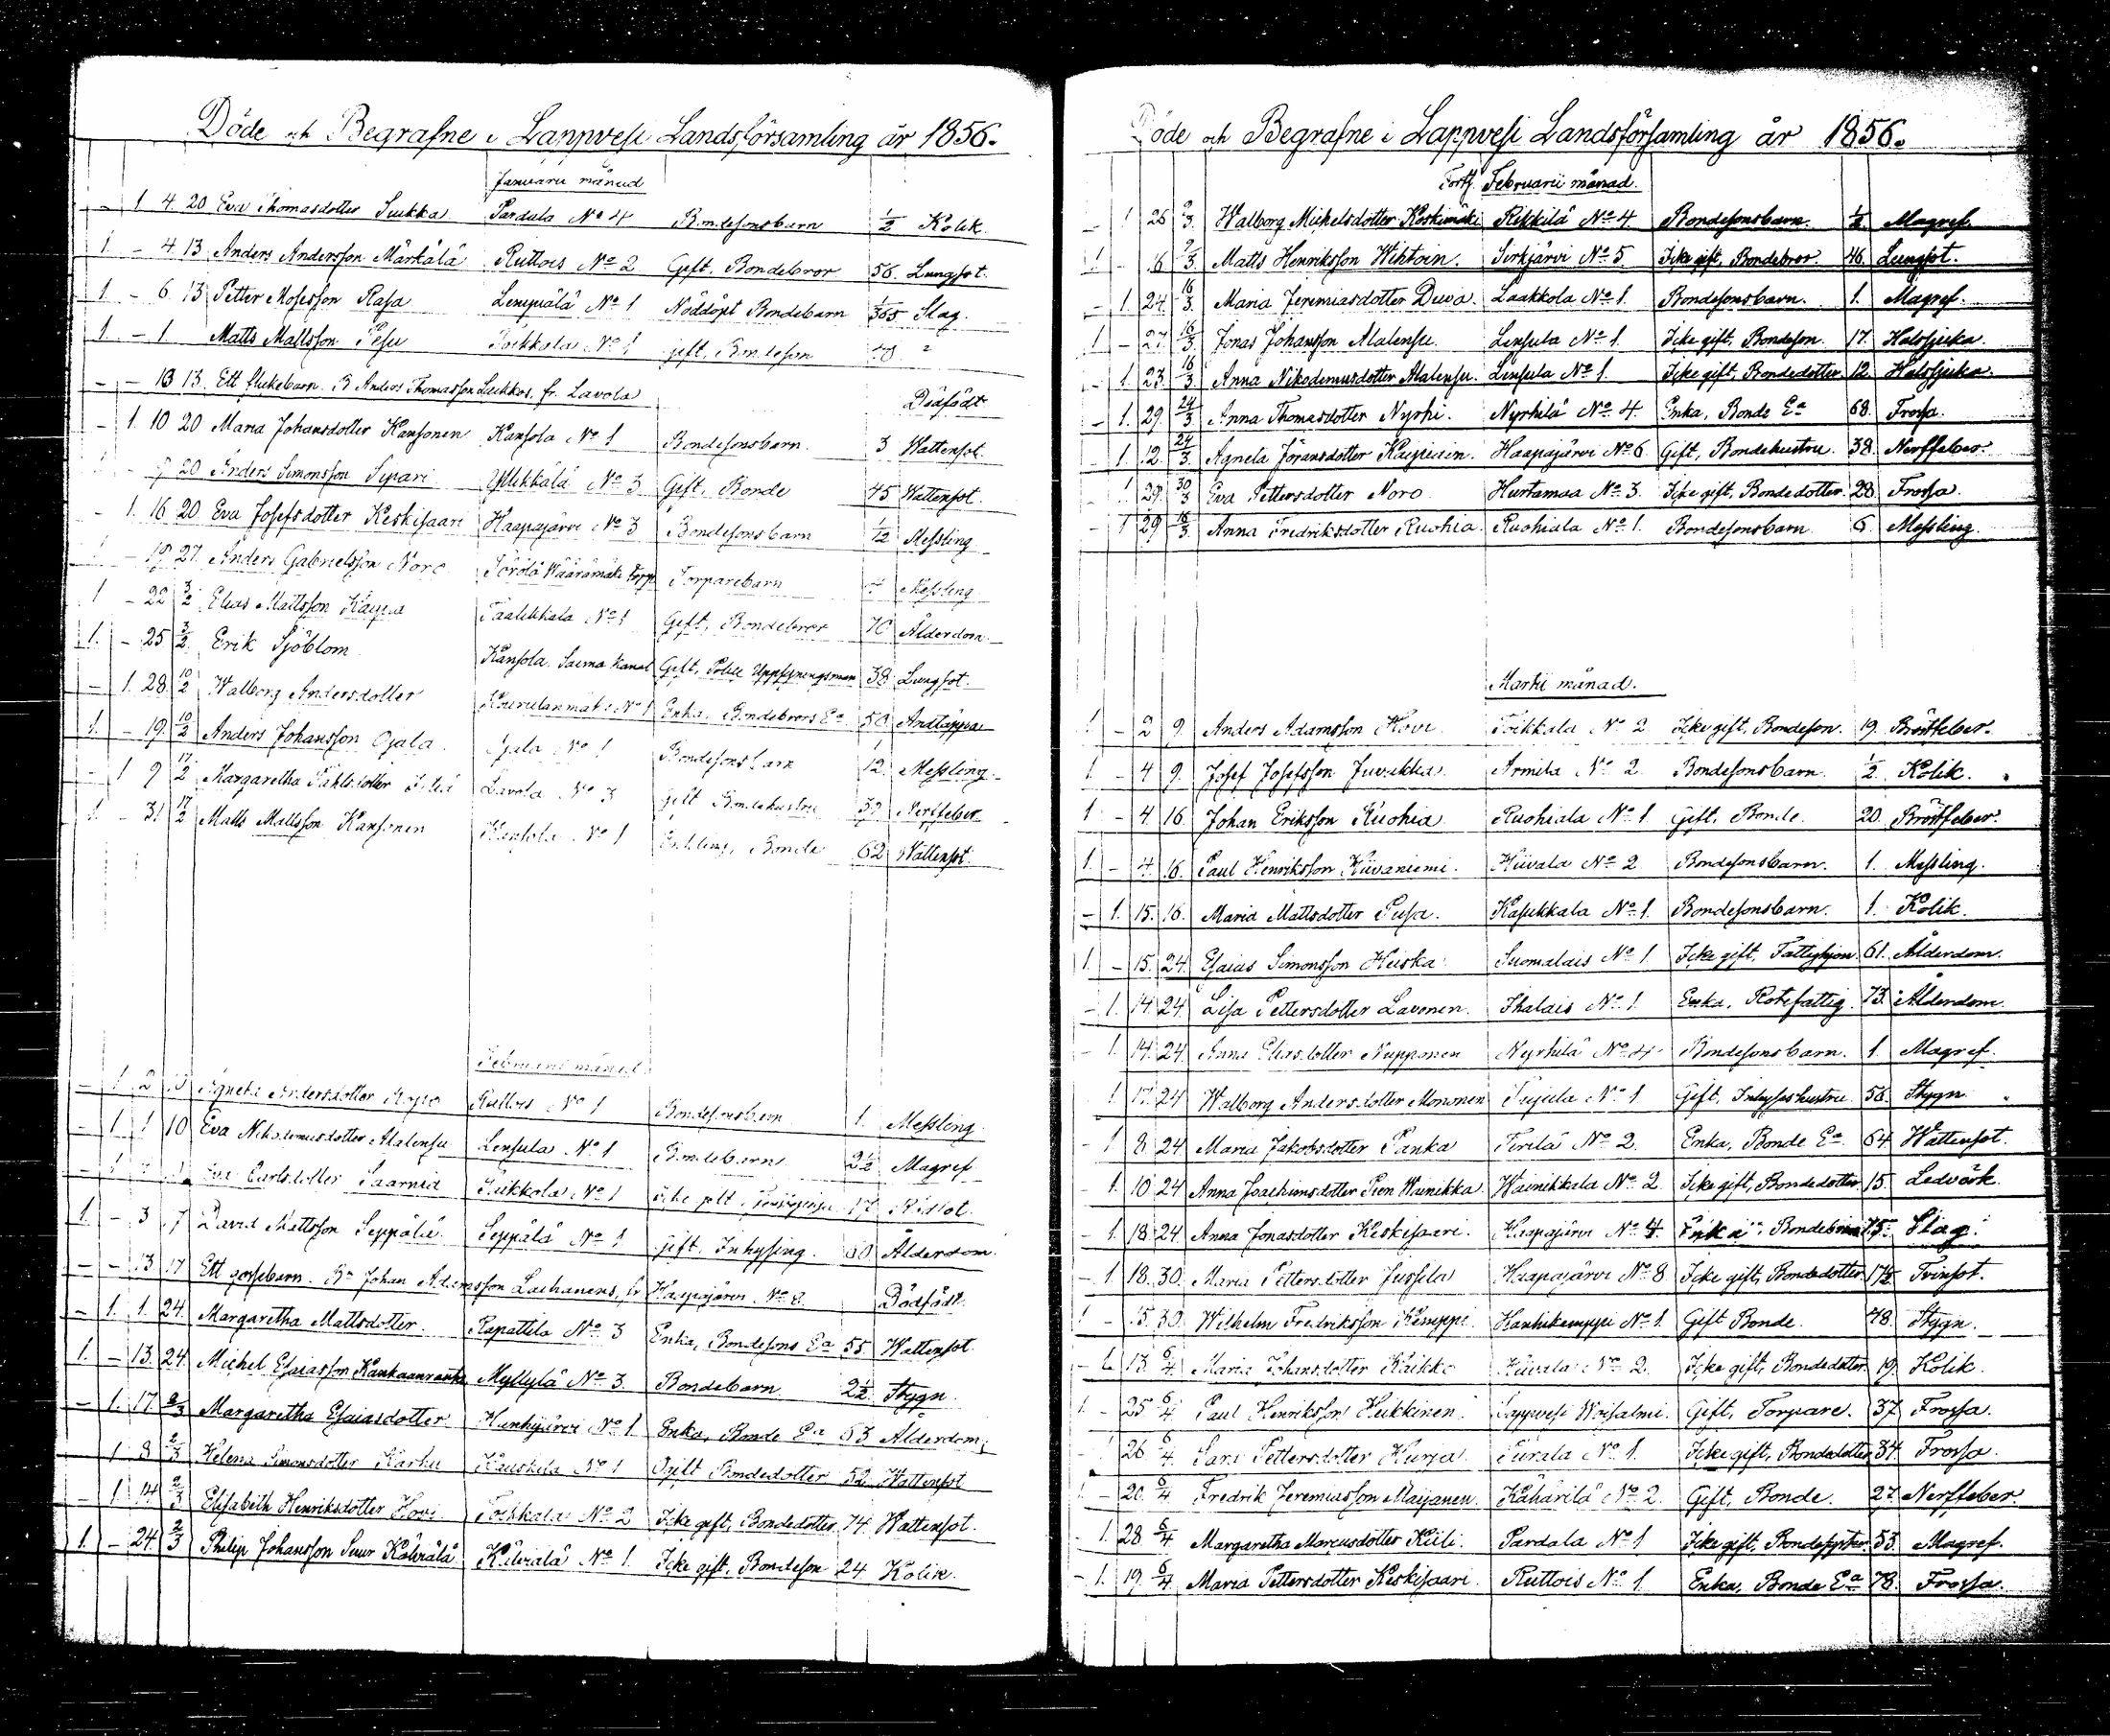 Döde och Begrafne i Lappvesi Landsförsamling år 1856.
Januarii månad
- 1 4. 20 Eva Thomasdotter Suikka Pardala No 4 Bondesonsbarn 1/2 Kolik.
1 - 4 13 Anders Andersson Märkälä Ruttois No 2 Gift, Bondebror 56 Lungsot.
1 - 6 13 Petter Mosesson Rasa Lempälä No 1 Nöddöpt Bondebarn 1/365 Slag.
1 - 1 Matts Mattsson Pesu Toikkala No 1 gift, Bondeson
- - 13 13. Ett flickebarn. B Anders Thomasson Luukkas, fr. Lavola Dödfödt
- 1 10 20 Maria Johansdotter Kansonen Kansola No 1 Bondesonsbarn 3 Wattensot.
- 7 20 Anders Simonsson Sipari Yllikkälä No 3 Gift, Bonde 45 Wattensot.
- 1. 16 20 Eva Josefsdotter Keskisaari Haapajärvi No 3 Bondesonsbarn 1/2 Messling
1 - 19 27. Anders Gabrielsson Noro Törölä Wäärämäki Torp Torparebarn Messling
1 - 22 3/2 Elias Mattsson Kaipia Taalikkala No 1 Gift, Bondebror 70 Ålderdom
1. - 25 3/2 Erik Sjöblom Kansola Saima Kanal Gift, Police Uppsyningsman 38 Lungsot.
- 1. 28. 10/2 Walborg Andersdotter No 1 Enka, Bondebrors Ea 50 Andtäppa
1. - 19. 10/2 Anders Johansson Ojala Ojala No 1 Bondesonsbarn 1/2. Messling
- 1 9 17/2 Margaretha Påhlsdotter Lavola No 3 Gift Bondehustru 39 Nerffeber
1. - 31 17/2 Matts Mattsson Kansonen Kansola No 1 Enkling, Bonde 62 Wattensot.
Februarii månad
- 1 2 Agneta Andersdotter Ruttois No 1 Bondesonsbarn 1. Messling.
- 1 1 10 Eva Nikodemusdotter Malensu Lensula No 1 Bondebarn 2 1/2 Magref
Eva Carlsdotter Saarnia Tuikkola No 1 17 Ristot.
1. - 3 17 David Mattsson Seppälä Seppälä No 1 Gift, Inhysing. 60 Ålderdom.
- - 13 17 Ett gossebarn. Bn Johan Adamsson Laihanens, fr Haapajärvi No 8. Dödfödt.
- 1. 1. 24. Margaretha Mattsdotter. Rapattila No 3 Enka, Bondesons Ea 55 Wattensot
1. - 13. 24. Michel Esaiasson Kankaanranta Myllylä No 3. Bondebarn 2 1/2 Stygn.
- 1. 17 2/3 Margaretha Esaiasdotter Hanhijärvi No 1 Enka, Bonde Ea 63 Ålderdom,
1 8 2/3 Helena Simonsdotter Karhu Kauskila No 1 Ogift Bondedotter 52 Wattensot
- 1. 14. 2/3 Elisabeth Henriksdotter Hovi Toikkala No 2 Icke gift, Bondedotter 74 Wattensot.
1. - 24. 2/3 Philip Johansson Suur Kälviälä Kälviälä No 1. Icke gift, Bondeson 24 Kolik.
Döde och Begrafne i Lappvesi Landsförsamling år 1856.
Forts. Februarii månad.
- 1 26 2/3. Walborg Michelsdotter Koskimäki Rikkilä No 4. Bondesonsbarn. 1/2 Magref.
1 - 6 9/3. Matts Henriksson Wihtoin. Sirkjärvi No 5. Icke gift, Bondebror. 46. Lungsot.
- 1. 24. 16/3. Maria Jeremiasdotter Duva. Laakkola No 1. Bondesonsbarn. 1. Magref.
1 - 27. 16/3. Jonas Johansson Malensu. Lensula No 1. Icke gift, Bondeson. 17. Halssjuka
- 1. 23. 16/3. Anna Nikodemusdotter Malensu. Lensula No 1. Icke gift, Bondedotter 12. Halssjuka.
- 1. 29. 24/3 Anna Thomasdotter Nyrhi. Nyrhilä No 4. Enka, Bonde Ea 68. Frossa.
- 1. 12. 24/3. Agneta Göransdotter Kaipiain. Haapajärvi No 6 Gift, Bondehustru. 38. Nerffeber.
- 1. 29. 30/3 Eva Pettersdotter Noro. Hurtamaa No 3. Icke gift, Bondedotter. 28. Frossa.
- 1 29 16/3. Anna Fredriksdotter Ruohia. Ruohiala No 1. Bondesonsbarn 6. Messling.
Martii månad.
1 - 2 9. Anders Adamsson Hovi Toikkala No 2 Icke gift, Bondeson. 19. Bröstfeber.
1 - 4 9. Josef Josefsson Juvakka. Armila No 2 Bondesonsbarn. 1/2. Kolik.
1 - 4. 16. Johan Eriksson Ruohia Ruohiala No 1. Gift, Bonde. 20. Bröstfeber.
1. - 4. 16. Paul Henriksson Hiivaniemi. Hiivala No 2 Bondesonsbarn. 1. Messling.
- 1. 15. 16. Maria Mattsdotter Pusa. Kasukkala No 1. Bondesonsbarn. 1. Kolik.
1. - 15. 24. Esaias Simonsson Huiska Suomalais No 1. Icke gift, Fattighjon. 61. Ålderdom.
- 1. 14. 24. Lisa Pettersdotter Lavonen. Ihalais No 1. Enka, Rotefattig. 73. Ålderdom.
- 1. 14. 24. Anna Eliasdotter Nupponen Nyrhilä No 4 Bondesonsbarn. 1. Magref.
1 17 24 Walborg Andersdotter Mononen Tujula No 1 Gift, Inhyseshustru 56. Stygn.
- 1 8. 24 Maria Jakobsdotter Panka Tirilä No 2. Enka, Bonde Ea 64 Wattensot.
- 1. 10 24 Anna Joachimsdotter Pien Wainikka. Wainikkala No 2. Icke gift, Bondedotter. 15. Ledvärk.
- 1. 18. 24 Anna Jonasdotter Keskisaari. Haapajärvi No 4. Enka 75. Slag.
- 1. 18. 30. Maria Pettersdotter Jussila Haapajärvi No 8 Icke gift, Bondedotter. 17 1/2 Tvinsot.
1 - 15 30. Wilhelm Fredriksson Kemppi. Hanhikemppi No 1. Gift Bonde. 48. Stygn.
- 1. 13 6/4 Maria Johansdotter Kaikko Hiivala No 2. Icke gift, Bondedotter. 19. Kolik.
1 - 25 6/4 Paul Henriksson Heikkinen. Lappvesi Woisalmi. Gift, Torpare. 37. Frossa.
- 1 26 6/4 Sara Pettersdotter Hurja Purala No 1. Icke gift, Bondedotter 34. Frossa.
1 - 20. 6/4 Fredrik Jeremiasson Maijanen. Kähärilä No 2. Gift, Bonde. 27. Nerffeber.
- 1. 28 6/4 Margaretha Marcusdotter Kiili. Pardala No 1 Icke gift, Bondesyster. 53. Magref.
- 1. 19. 6/4 Maria Pettersdotter Keskisaari. Ruttois No 1. Enka, Bonde Ea 78. Frossa.